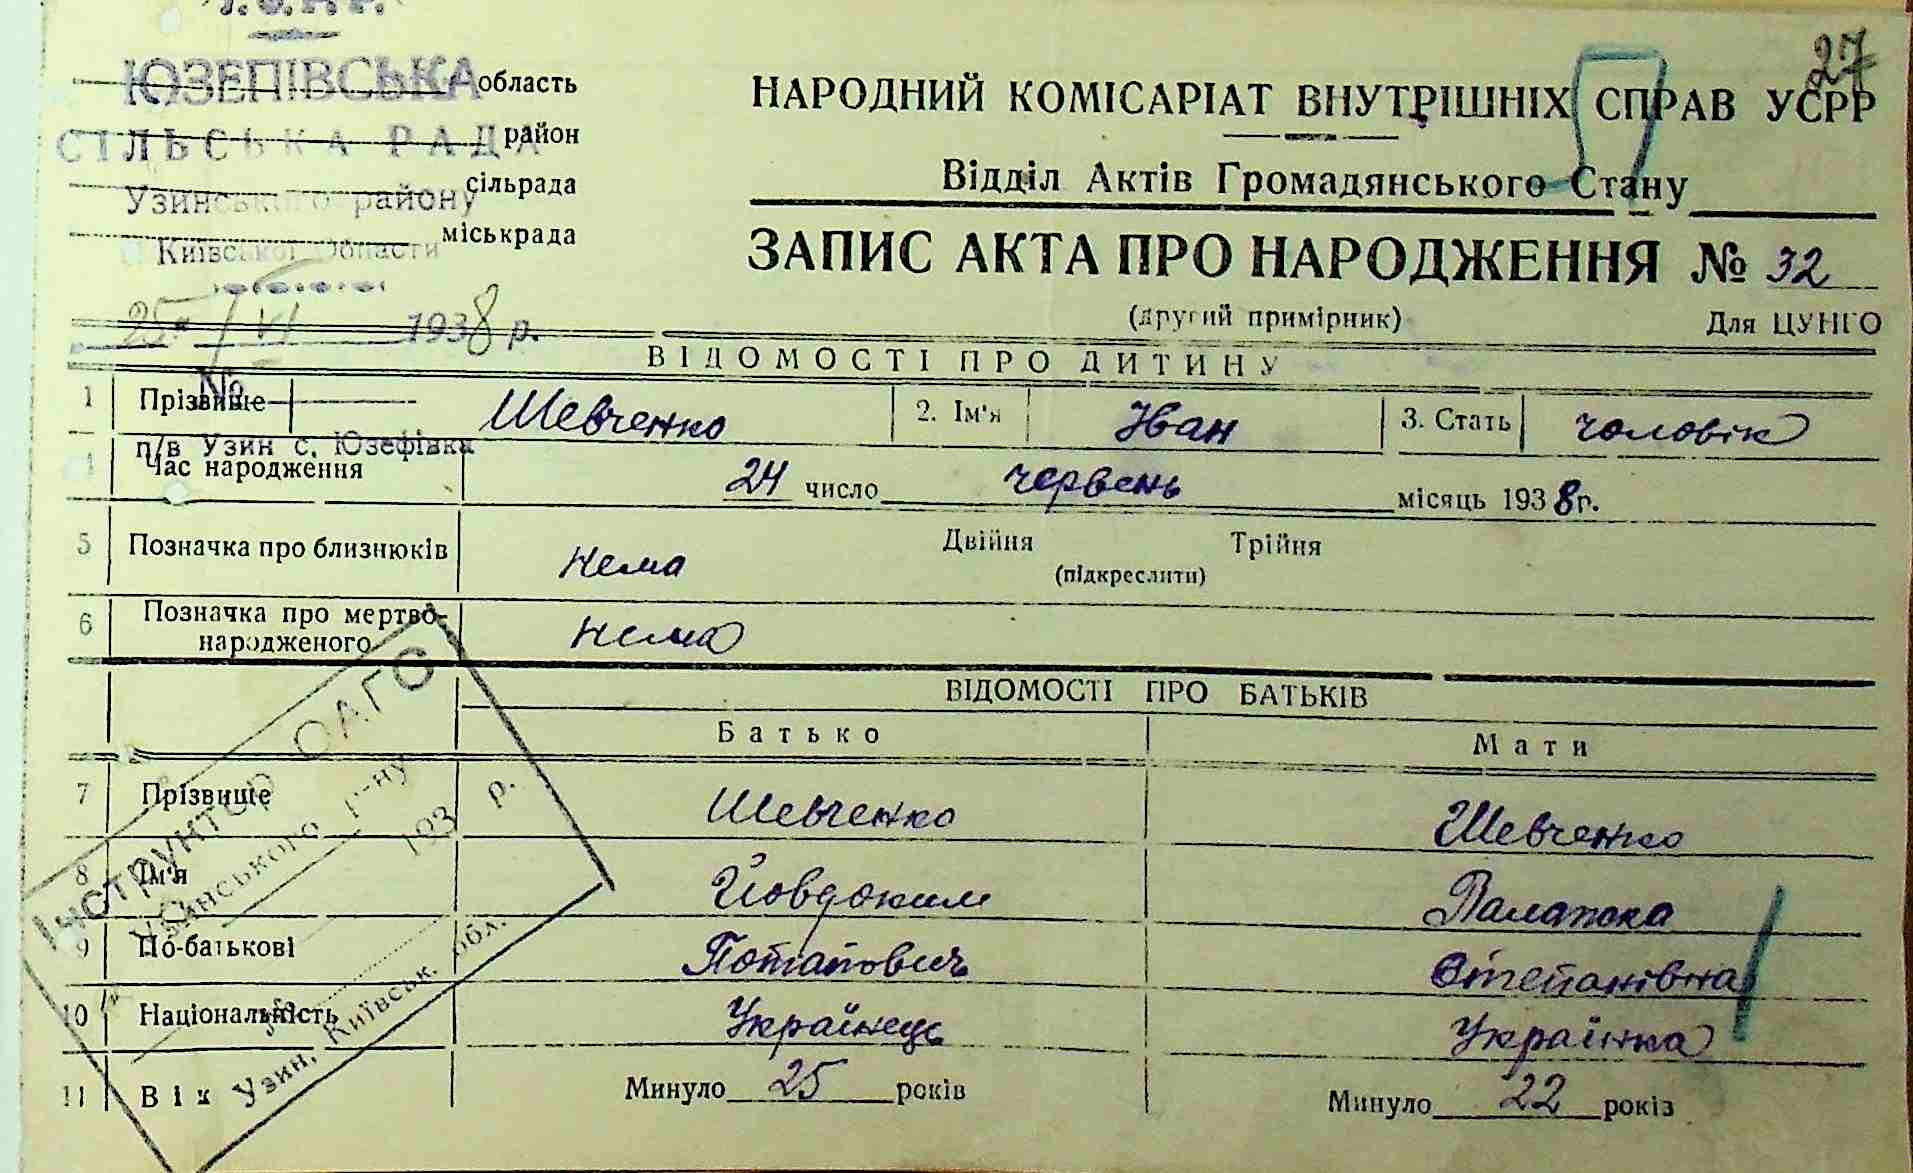 У.С.Р.Р.
27
ЮЗЕПІВСЬКА область
СІЛЬСЬКА РАДА район
сільрада
Узинського району
міськрада
Київської Области
25 / VI 1938 р.
№
п/в Узин с. Юзефівка
НАРОДНИЙ КОМІСАРІАТ ВНУТРІШНІХ СПРАВ УСРР
Відділ Актів Громадянського Стану
ЗАПИС АКТА ПРО НАРОДЖЕННЯ № 32
(другий примірник) Для ЦУНГО
ВІДОМОСТІ ПРО ДИТИНУ
1 Прізвище Шевченко 2. Ім'я Іван 3. Стать чоловік
4 Час народження 24 число червень місяць 1938 р.
5 Позначка про близнюків нема Двійня Трійня
(підкреслити)
6 Позначка про мертво-
народженого нема
ВІДОМОСТІ ПРО БАТЬКІВ
Батько Мати
7 Прізвище Шевченко Шевченко
8 Ім'я Йовдоким Палажка
9 По-батькові Потапович Степанівна
10 Національність Українець Українка
11 Вік Минуло 25 років Минуло 22 років
Інструктор ОАГС
Узинського р-ну
193 р.
Узин, Київськ. обл.